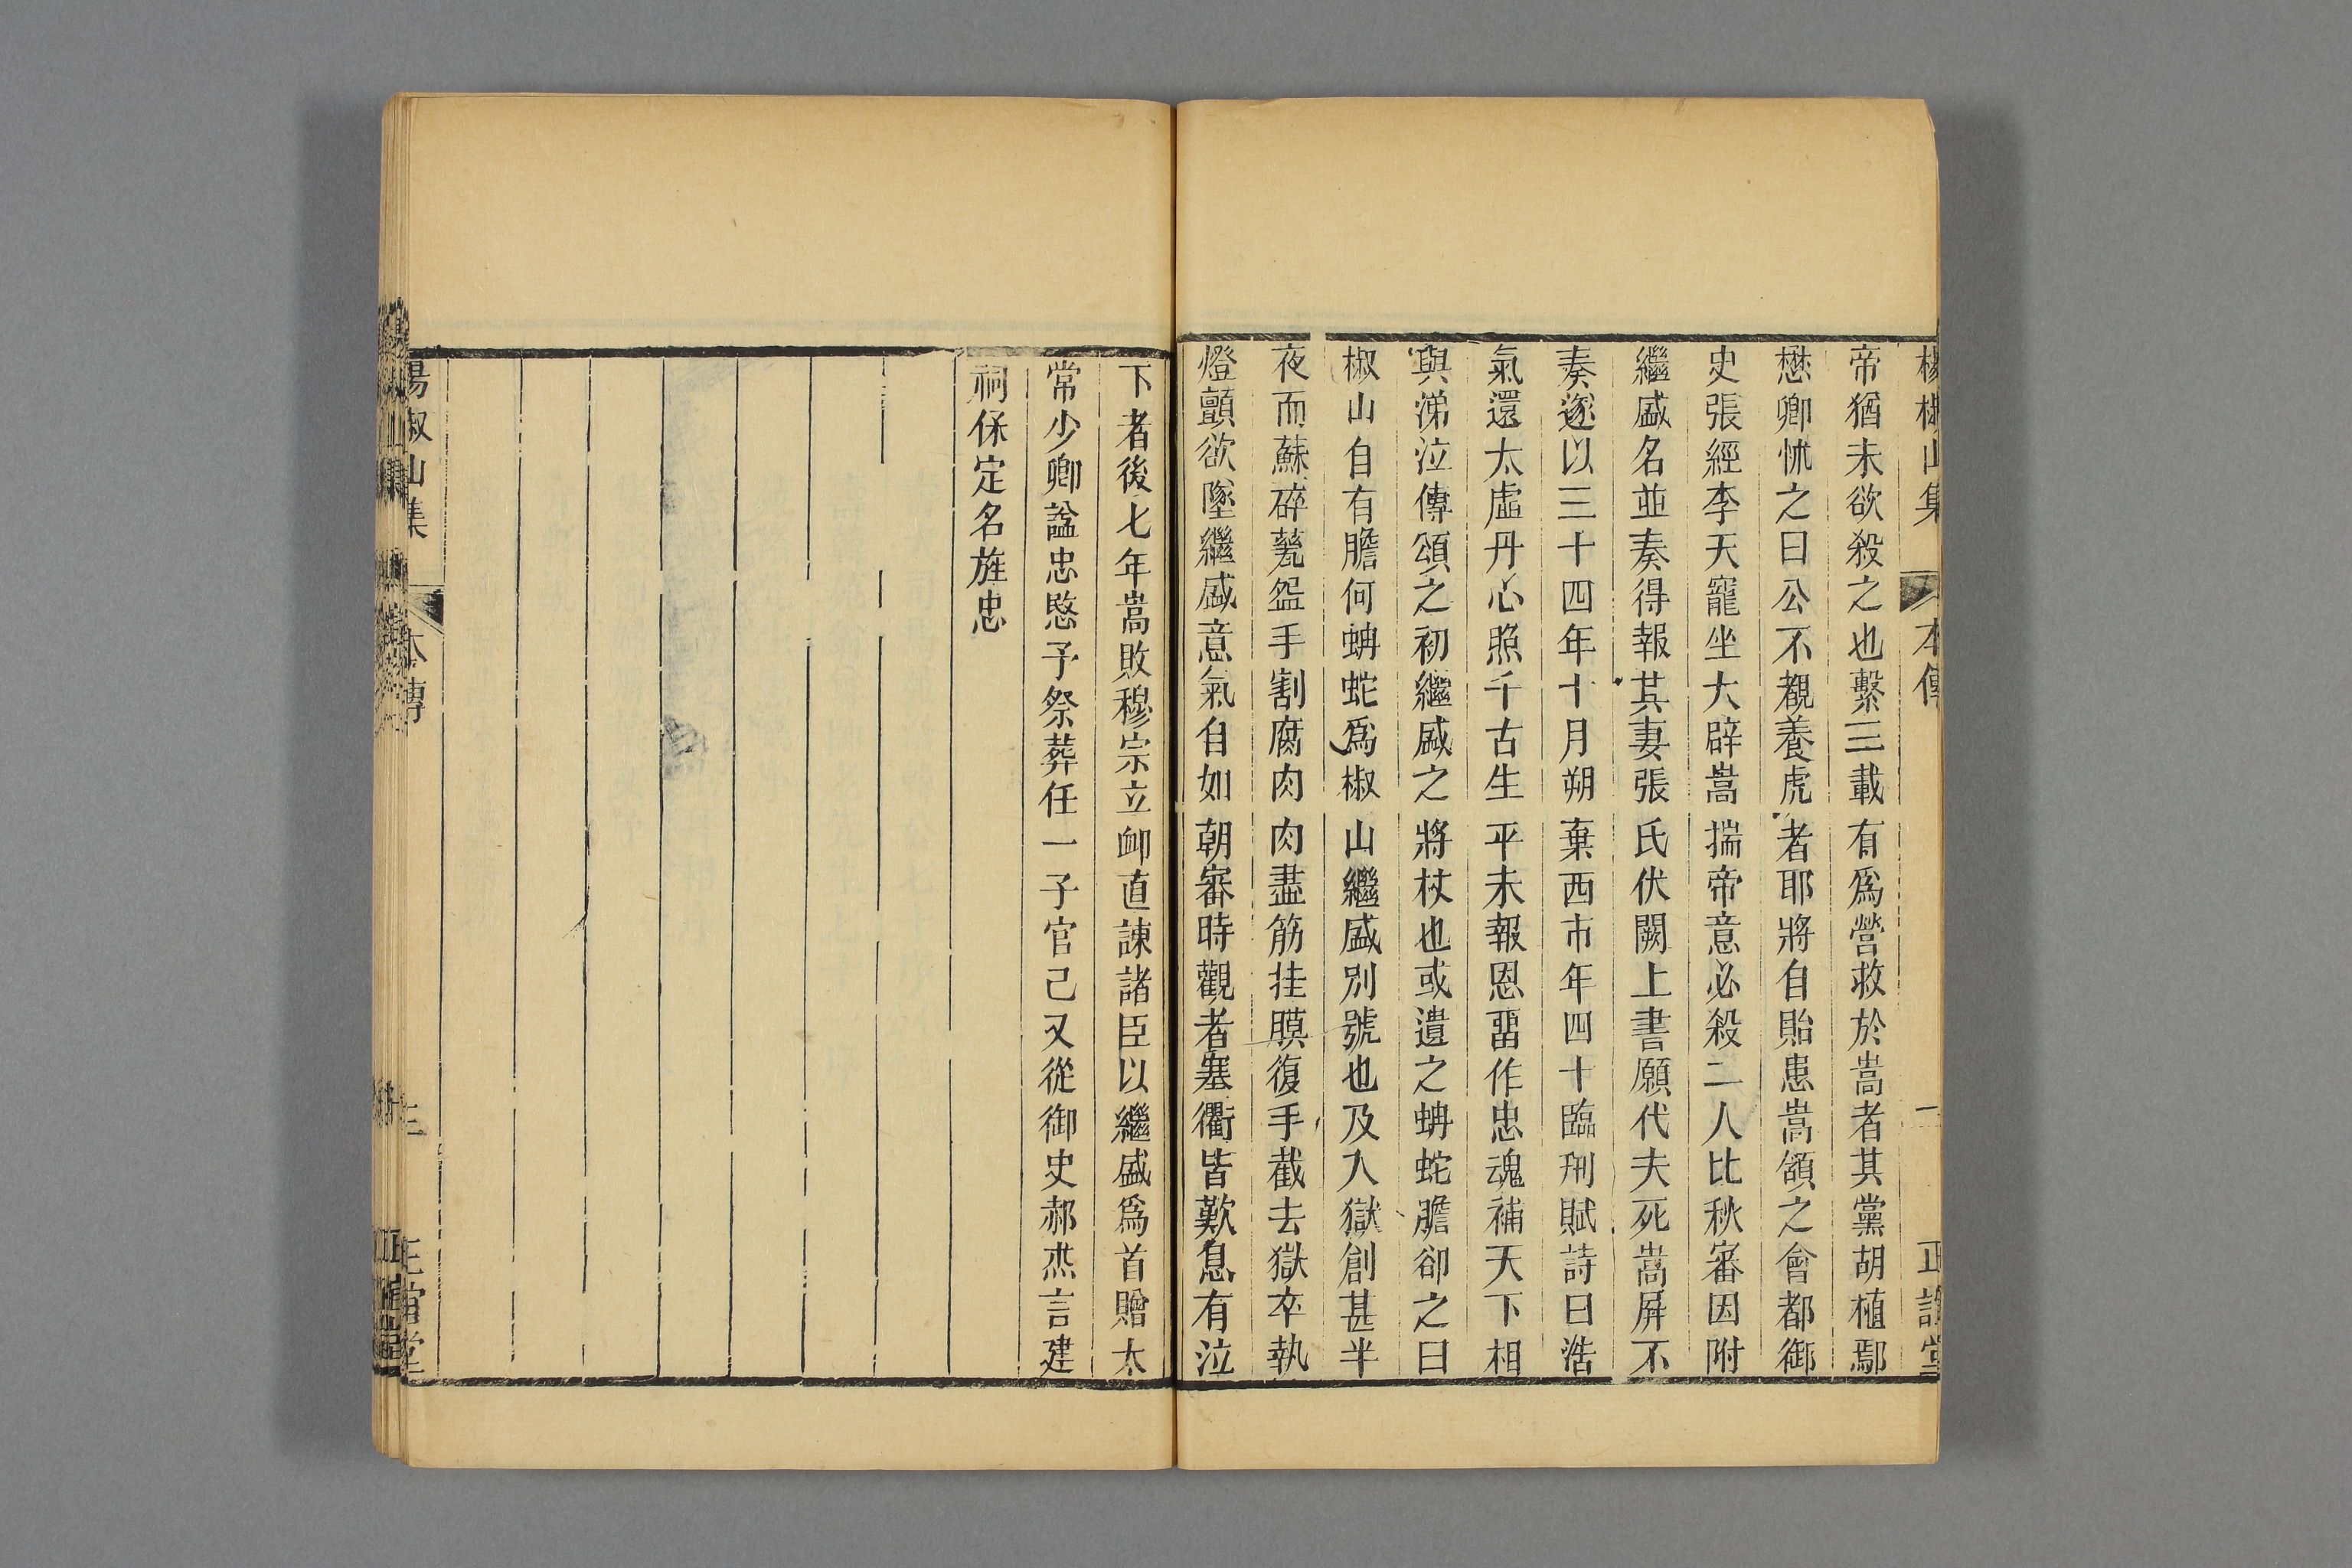 楊椒山集 本傳 二 正誼堂
帝猶未欲殺之也繫三載有爲營救於嵩者其黨胡植鄢
懋卿怵之曰公不覩養虎者耶將自貽患嵩頷之會都御
史張經李天寵坐大辟嵩揣帝意必殺二人比秋審因附
繼盛名並奏得報其妻張氏伏闕上書願代夫死嵩屏不
奏遂以三十四年十月朔棄西市年四十臨刑賦詩曰浩
氣還太虛丹心照千古生平未報恩畱作忠魂補天下相
與涕泣傳頌之初繼盛之將杖也或遺之蚺蛇膽卻之曰
椒山自有膽何蚺蛇爲椒山繼盛別號也及入獄創甚半
夜而蘇碎甆盌手割腐肉肉盡筋挂膜復手截去獄卒執
燈顫欲墜繼盛意氣自如朝審時觀者塞衢皆歎息有泣
下者後七年嵩敗穆宗立卹直諫諸臣以繼盛爲首贈太
常少卿諡忠愍予祭葬任一子官已又從御史郝杰言建
祠保定名旌忠
楊椒山集 本傳 三 正誼堂